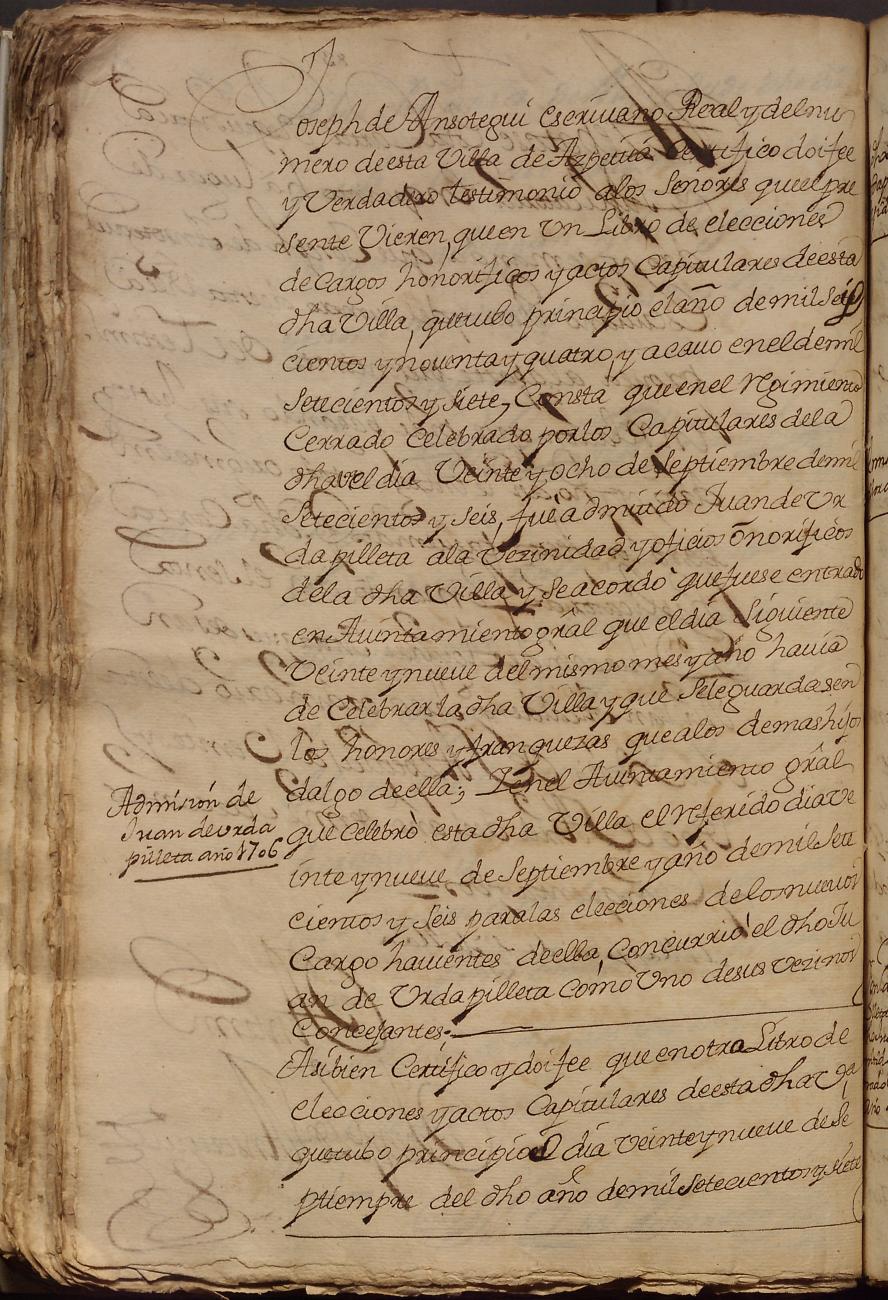 Joseph de Ansotegui escriuano Real y del nu
mero de esta Villa de Azpeitia Certifico doi fee
y Verdadero testimonio alos Señores que el pre
sente Vieren, que en Un Libro de elecciones
de Cargos honorificos y actos Capitulares de esta
dha Villa, que tubo principio el año de mil Seis
cientos y nouenta y quatro, y acauo en el de mil
Setecientos y siete, Consta que en el Rgimiento
Cerrado Celebrado por los Capitulares de la
dha vel dia Veinte y ocho de Septiembre de mil
Setecientos y seis, fue admitido Juan de Vr
dapilleta ala Vezinidad y oficios onorificos
de la dha Villa y Se acordo que fuese entrado
en Auintamiento gral que el dia Siguiente
Veinte y nueue del mismo mes y año hauia
de Celebrar la dha Villa y que Se le guardasen
los honores y franquezas que alos demas hijos
dalgo de ella; Y en el Auintamiento gral
que celebró esta dha Villa el Referido dia Ve
inte y nueue de Septiembre y año de mil Sete
cientos y Seis para las elecciones de los nueuos
Cargo hauientes de ella, Concurrió el dho Ju
an de Vrdapilleta como Uno de sus Vezinos
Concejantes;
Asibien Certifico y doi fee que en otro Libro de
elecciones y actos Capitulares de esta dha Va
que tubo principio el dia Veinte y nueue de Se
ptiempre del dho año de mil Setecientos y siete
Admision de
Juan de vrda
pilleta año 1706